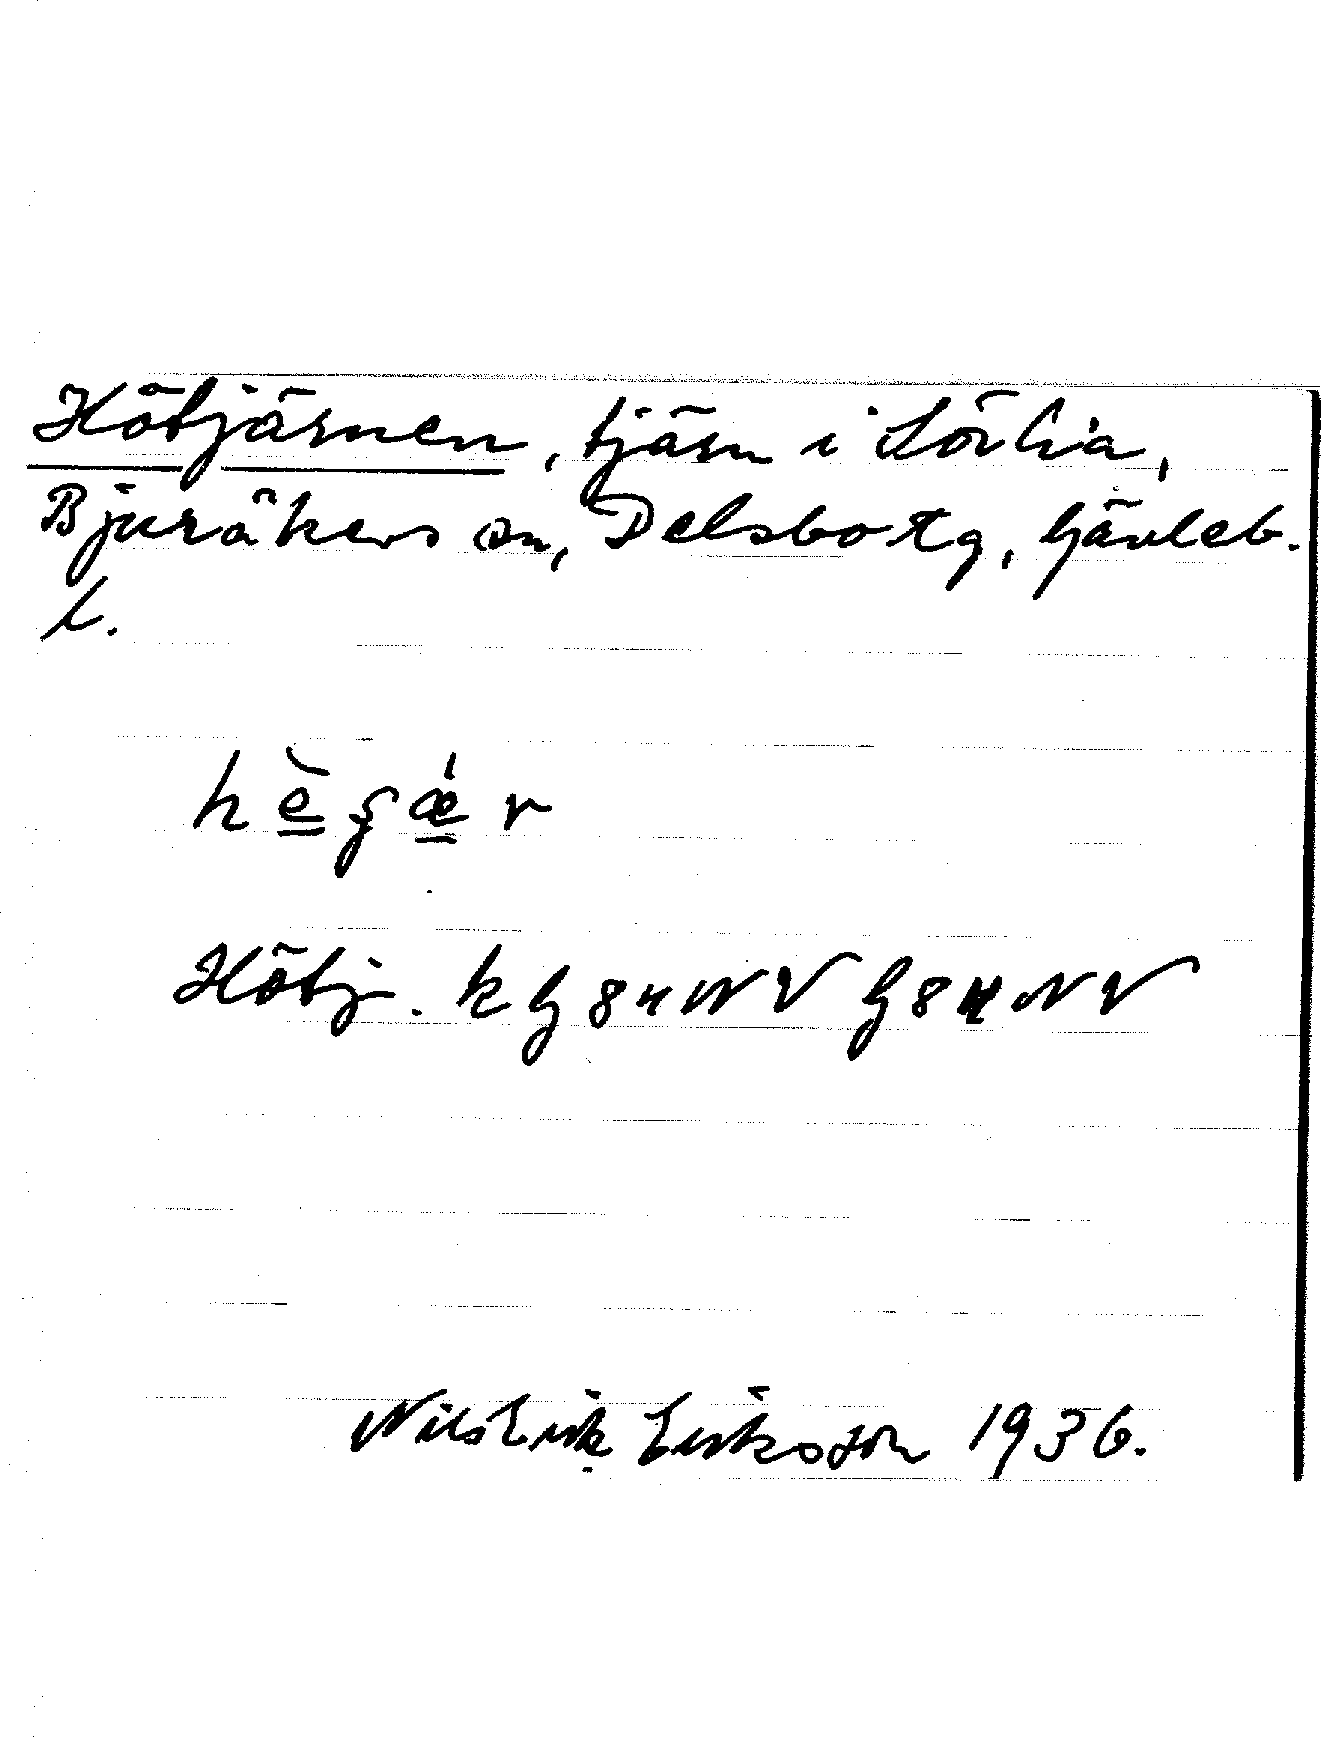 Hötjärnen, tjärn i Sörlia,
Bjuråkers sn, Delsbo tg, Gävleb.
l.
Hötj. k G 84 NV G 84 NV
Nils Erik Eriksson 1936.